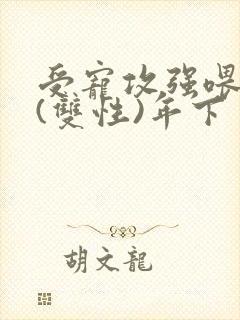 受寵攻强喂
(雙性)年下
胡文龍